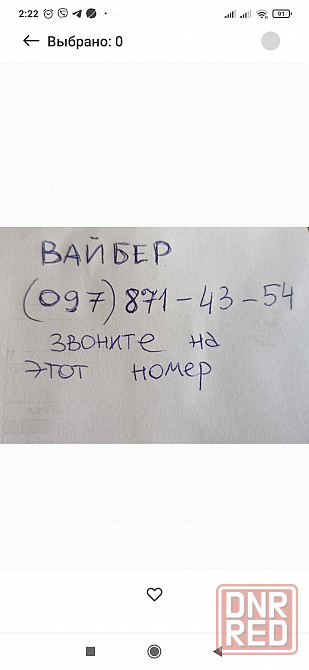 2:22
91
Выбрано: 0
ВАЙБЕР
(097) 871-43-54
звоните на
этот номер
DNR
RED